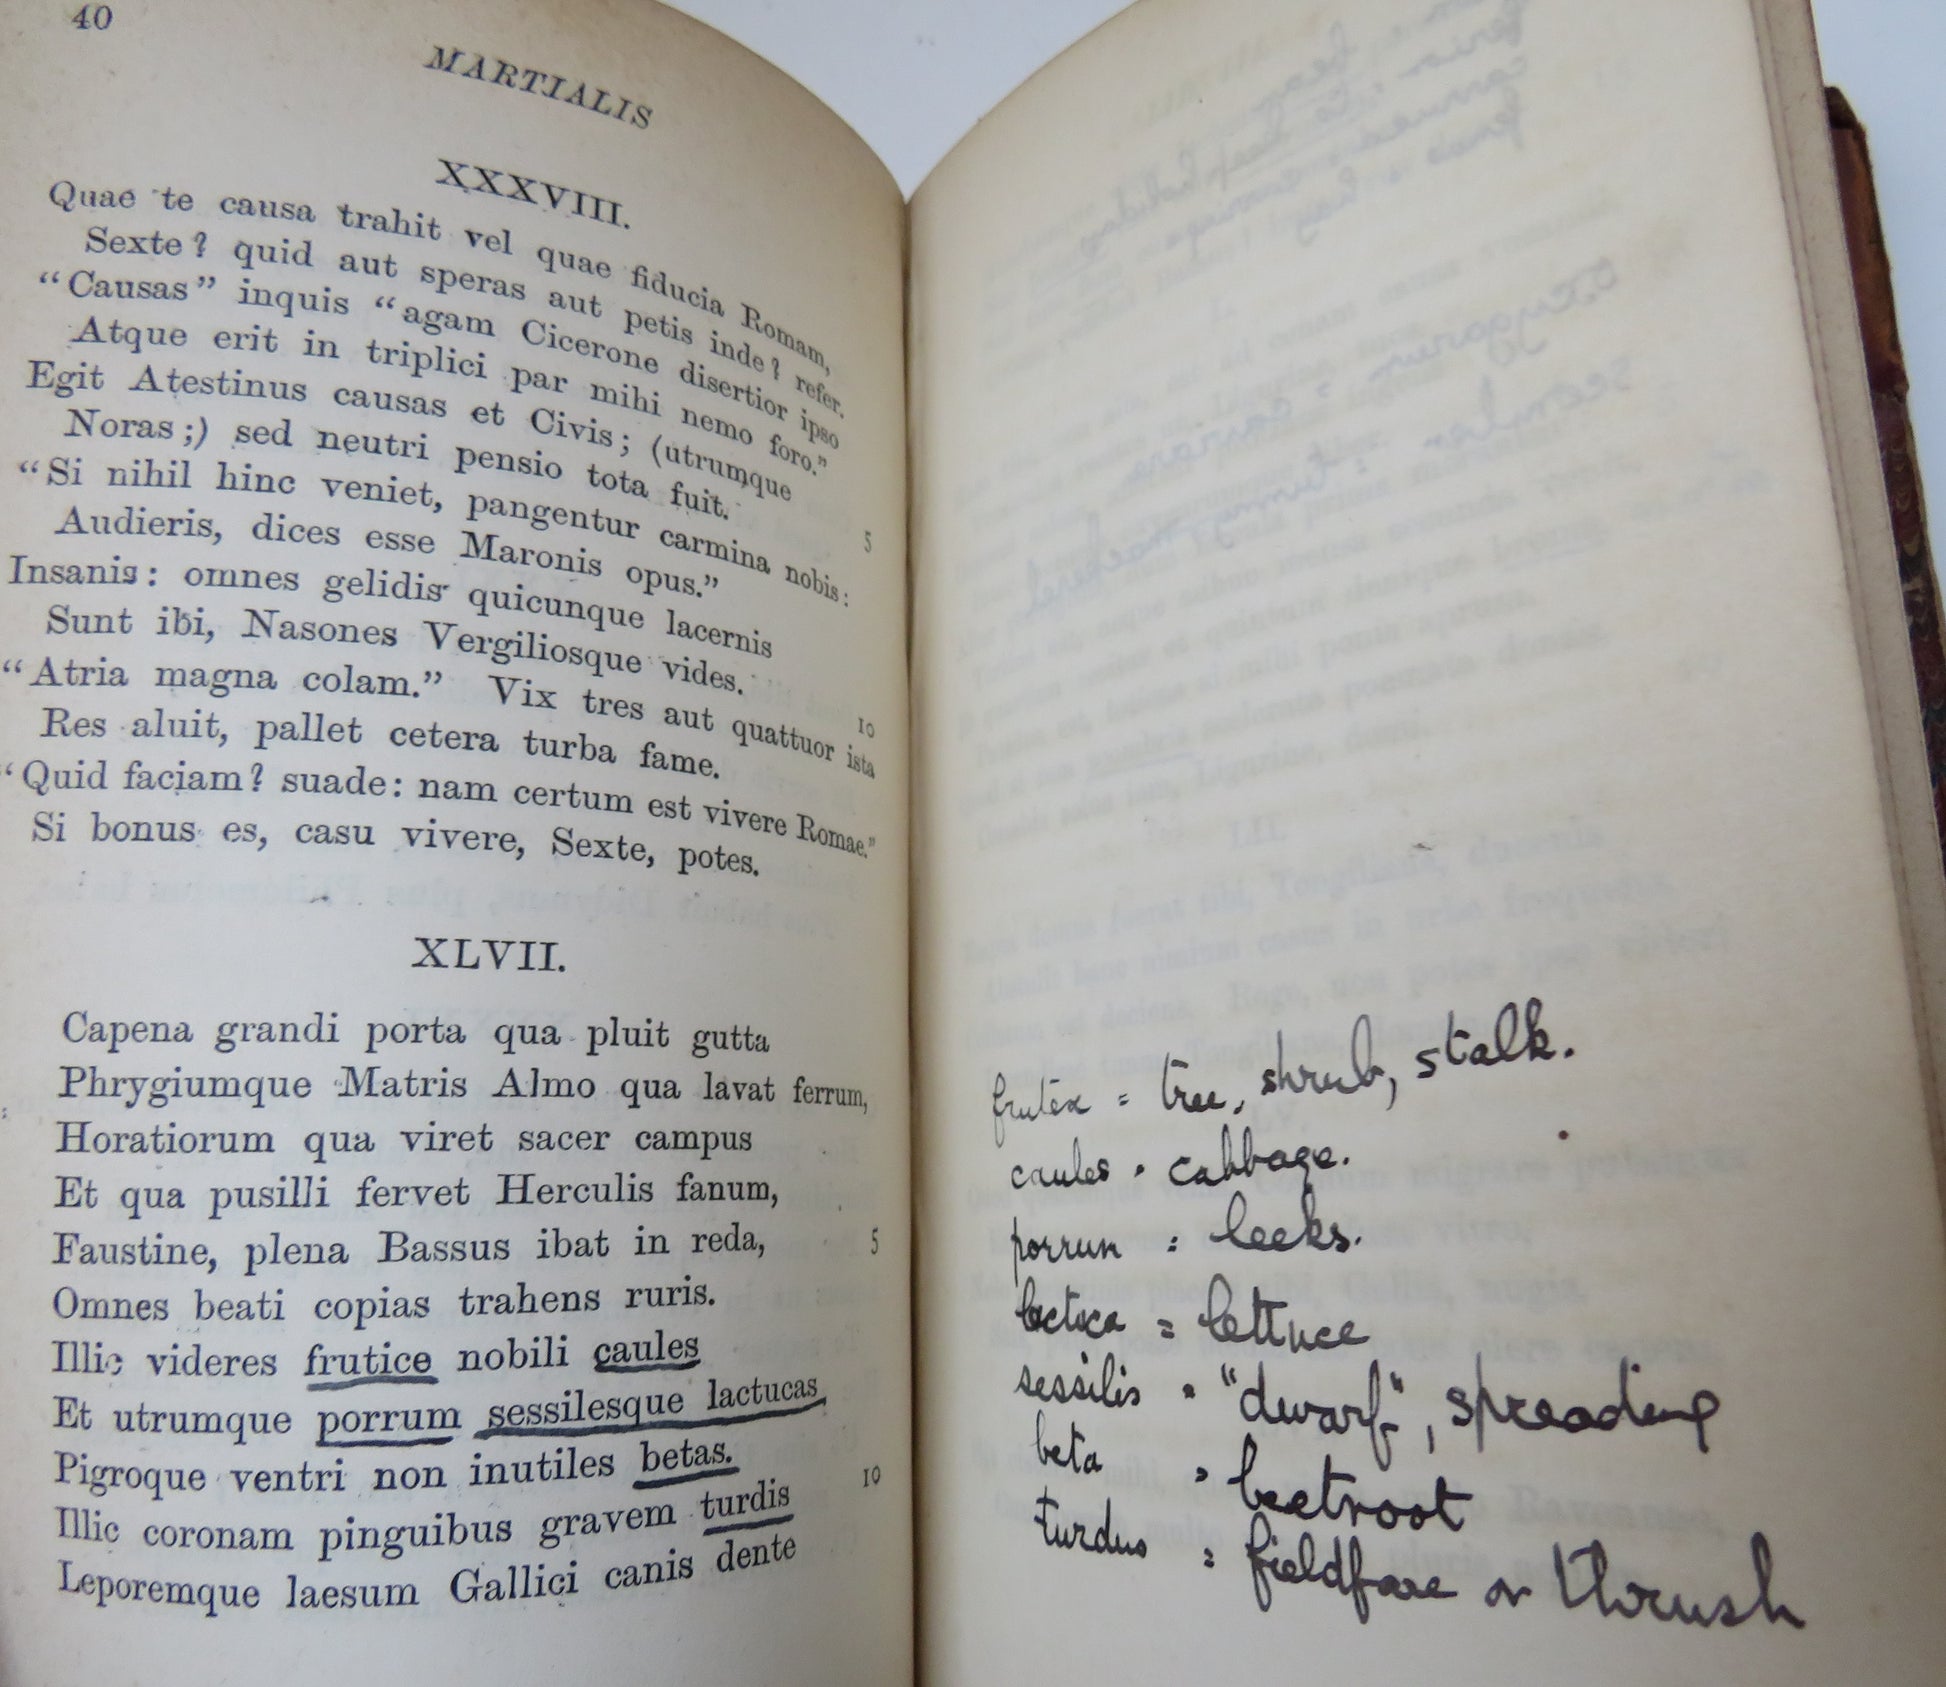 40
MARTIALIS
XXXVIII.
Quae te causa trahit vel quae fiducia Romam,
Sexte? quid aut speras aut petis inde? refer.
“Causas” inquis “agam Cicerone disertior ipso
Atque erit in triplici par mihi nemo foro.”
Egit Atestinus causas et Civis; (utrumque
Noras;) sed neutri pensio tota fuit. 5
“Si nihil hinc veniet, pangentur carmina nobis:
Audieris, dices esse Maronis opus.”
Insanis: omnes gelidis quicunque lacernis
Sunt ibi, Nasones Vergiliosque vides. 10
“Atria magna colam.” Vix tres aut quattuor ista
Res aluit, pallet cetera turba fame.
“Quid faciam? suade: nam certum est vivere Romae.”
Si bonus es, casu vivere, Sexte, potes.
XLVII.
Capena grandi porta qua pluit gutta
Phrygiumque Matris Almo qua lavat ferrum,
Horatiorum qua viret sacer campus
Et qua pusilli fervet Herculis fanum,
Faustine, plena Bassus ibat in reda, 5
Omnes beati copias trahens ruris.
Illic videres frutice nobili caules
Et utrumque porrum sessilesque lactucas
Pigroque ventri non inutiles betas.
Illic coronam pinguibus gravem turdis 10
Leporemque laesum Gallici canis dente
frutex = tree, shrub, stalk.
caules = cabbage.
porrum = leeks.
= lettuce
sessilis = "dwarf", spreading
beta = beetroot
turdus = fieldfare or thrush